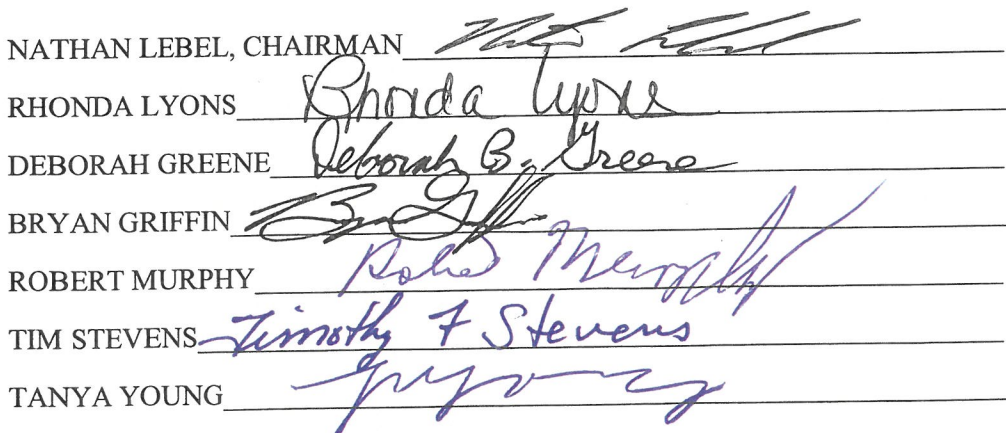 NATHAN LEBEL, CHAIRMAN
RHONDA LYONS Rhonda Lyons
DEBORAH GREENE Deborah B. Greene
BRYAN GRIFFIN
ROBERT MURPHY Robert Murphy
TIM STEVENS Timothy F Stevens
TANYA YOUNG